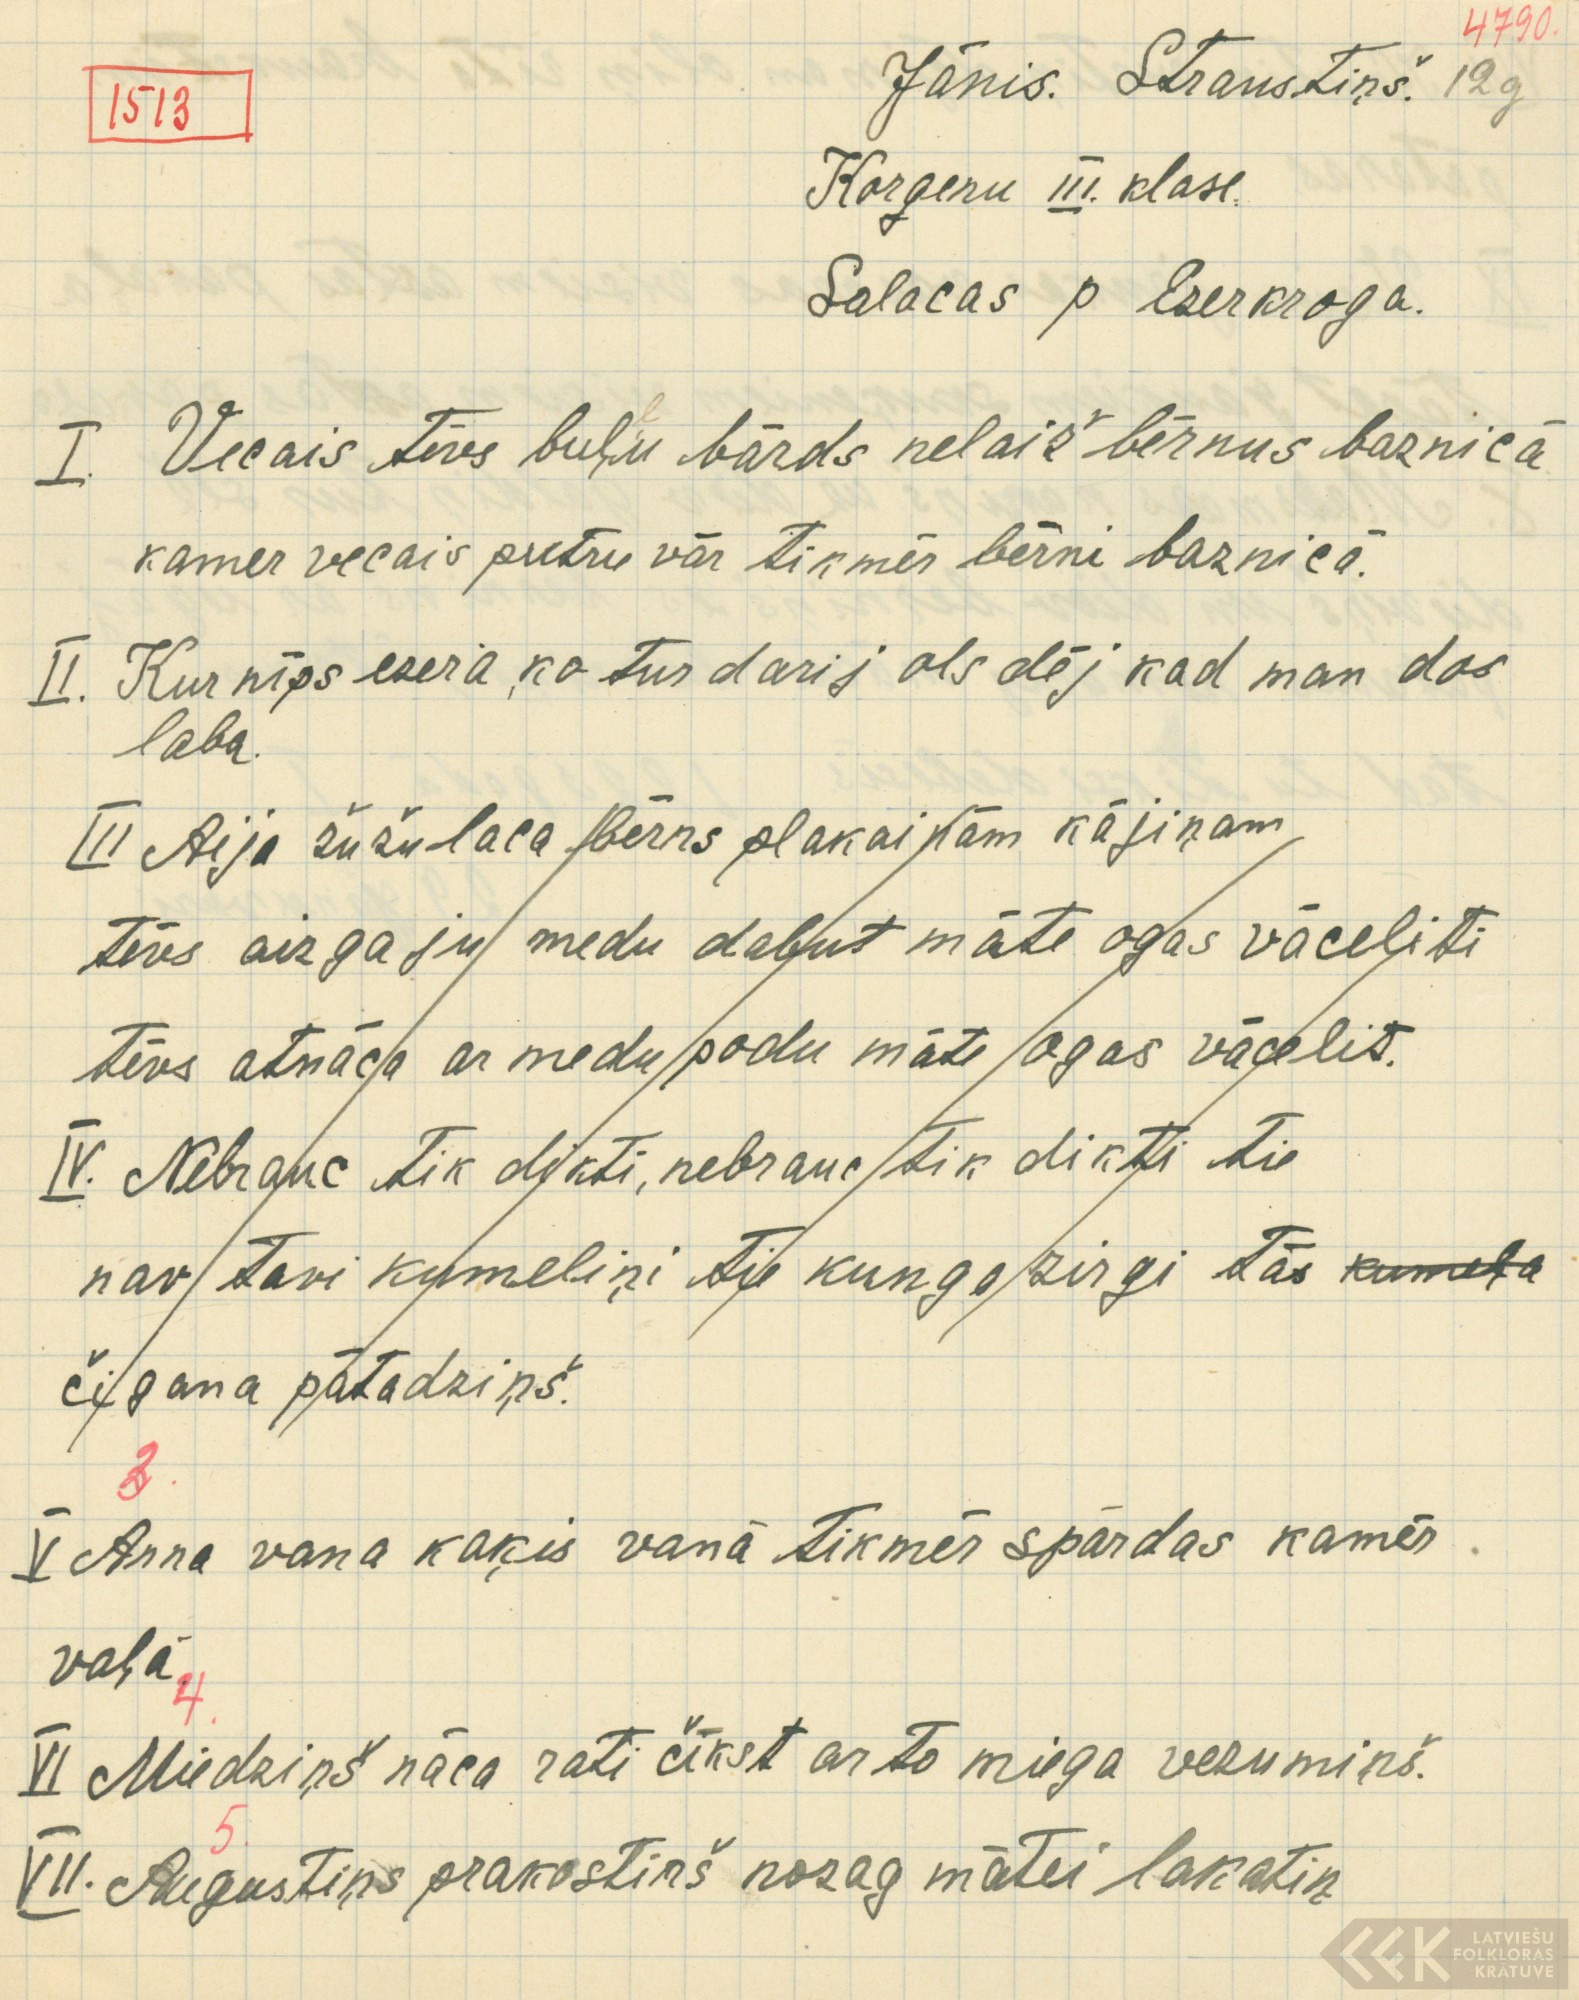 4790.
1513
Jānis. Straustiņš. 12g
Korgenu III. klase.
Salacas p Ezerkroga.
I. Vecais tēvs buļļu bārds nelaiž bērnus baznicā
kamer vecais putru vār tikmēr bērni baznicā.
II. Kur nīps ezerā, ko tur darij ols dēj kad man dos
laba.
III Aija žužu laca bērns plakaiņām kājiņam
tēvs aizgaju medu dabut māte ogas vāceliti
tēvs atnāca ar medu podu māte ogas vācelit.
IV. Nebrauc tik dikti, nebrauc tik dikti tie
nav tavi kumeliņi tie kunga zirgi tās kumeļa
čigana pātadziņš.
3.
V Anna vana kaķis vanā tikmēr spārdas kamēr
vaļā.
4.
VI Miedziņš nāca rati čīkst ar to miega vezumiņš.
5.
VII. Augustiņs prakostiņš nozag mātei lakatiņ
LATVIEŠU
FOLKLORAS
KRĀTUVE